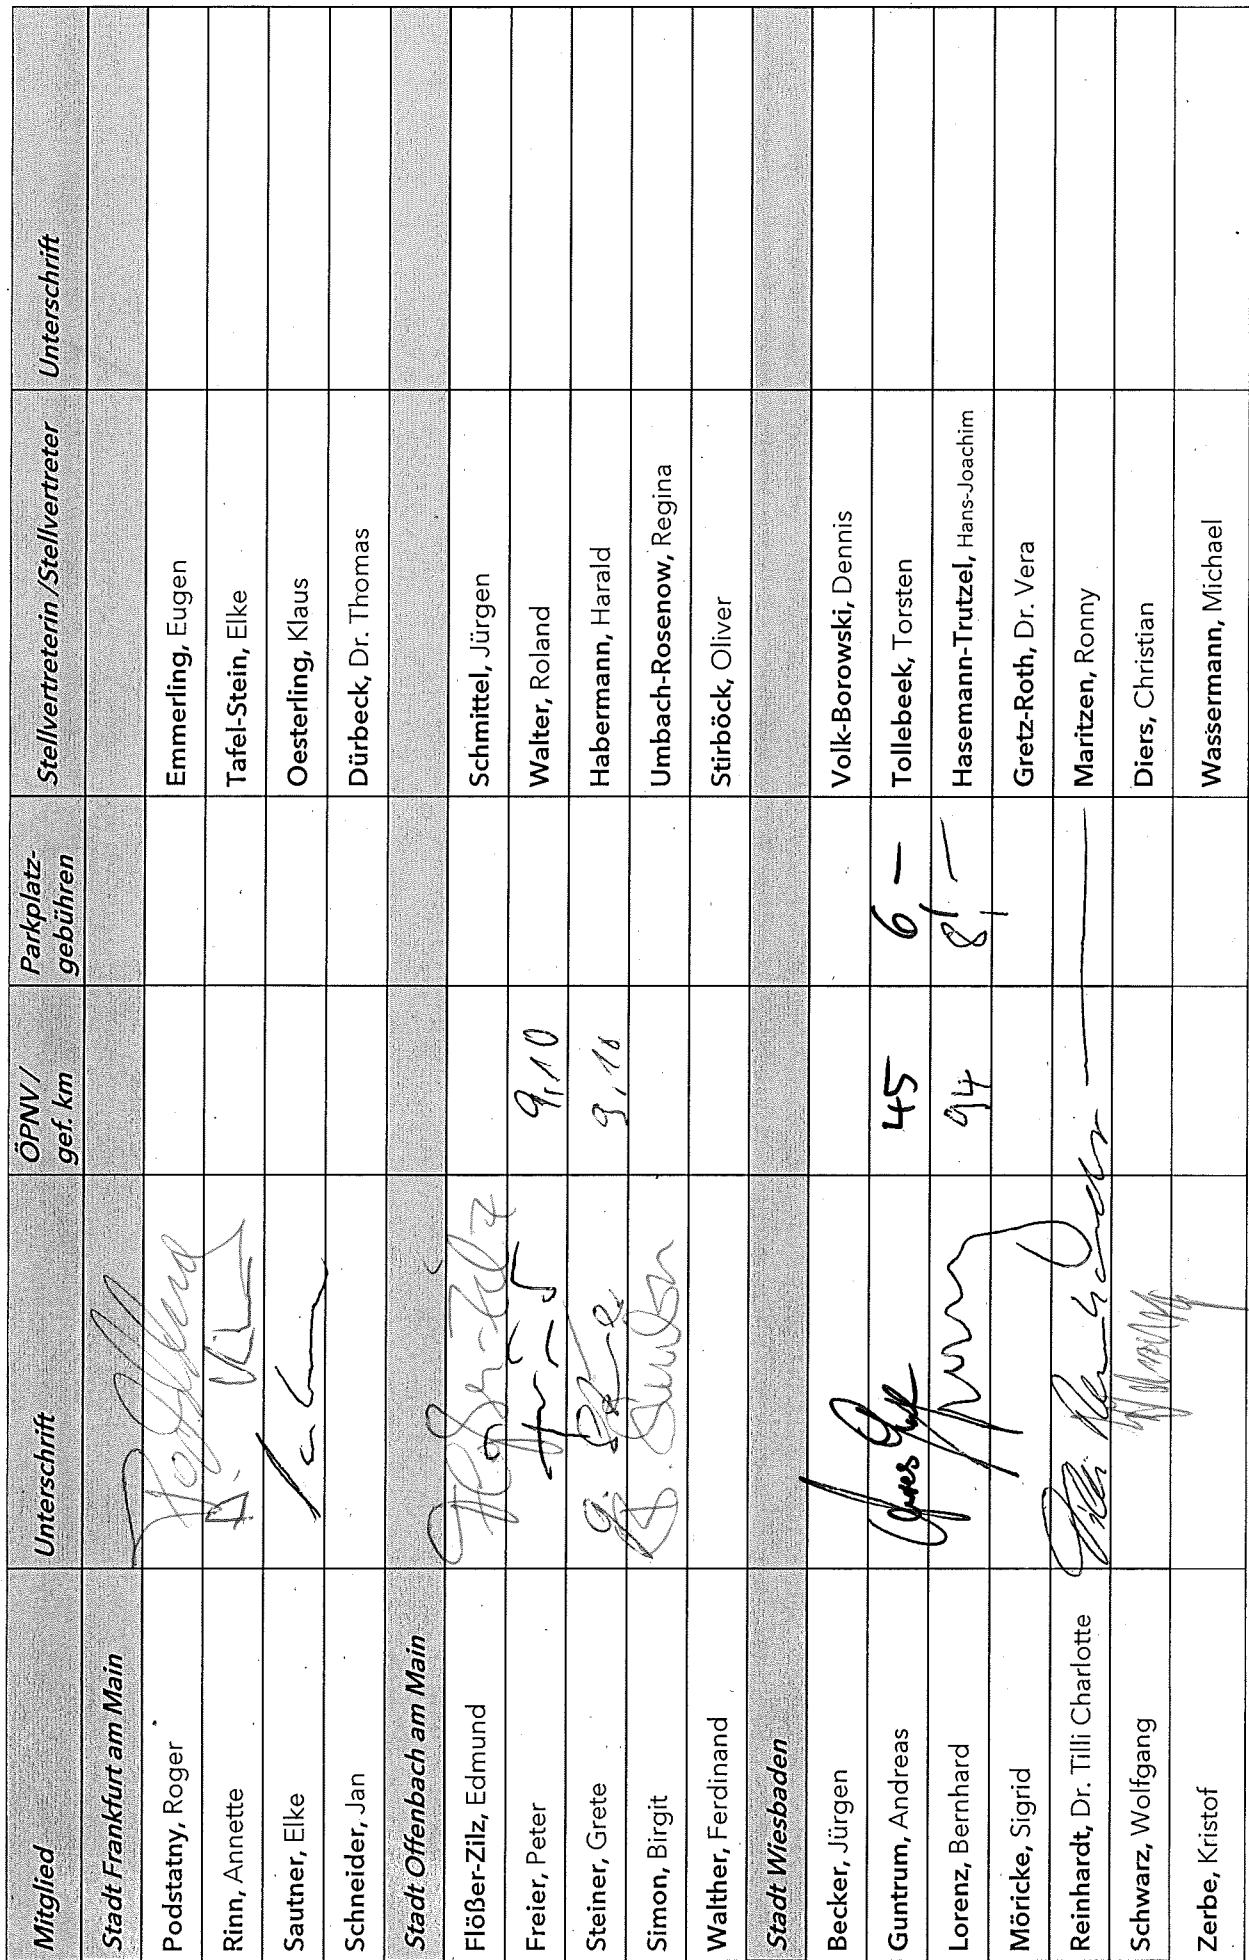 Mitglied Unterschrift ÖPNV / gef. km Parkplatz-gebühren Stellvertreterin /Stellvertreter Unterschrift
Stadt Frankfurt am Main
Podstatny, Roger Emmerling, Eugen
Rinn, Annette Tafel-Stein, Elke
Sautner, Elke Oesterling, Klaus
Schneider, Jan Dürbeck, Dr. Thomas
Stadt Offenbach am Main
Flößer-Zilz, Edmund Flößer-Zilz Schmittel, Jürgen
Freier, Peter 9,10 Walter, Roland
Steiner, Grete 9,10 Habermann, Harald
Simon, Birgit B. Simon Umbach-Rosenow, Regina
Walther, Ferdinand Stirböck, Oliver
Stadt Wiesbaden
Becker, Jürgen Volk-Borowski, Dennis
Guntrum, Andreas 45 6 — Tollebeek, Torsten
Lorenz, Bernhard 94 8,— Hasemann-Trutzel, Hans-Joachim
Möricke, Sigrid Gretz-Roth, Dr. Vera
Reinhardt, Dr. Tilli Charlotte Tilli Reinhardt — Maritzen, Ronny
Schwarz, Wolfgang Diers, Christian
Zerbe, Kristof Wassermann, Michael